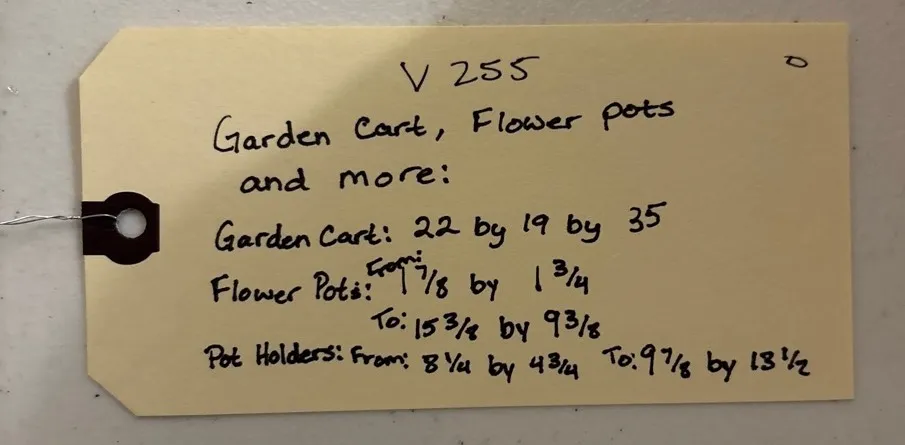 V 255
O
Garden Cart, Flower pots
and more:
Garden Cart: 22 by 19 by 35
Flower Pots: From: 1 7/8 by 1 3/4
To: 15 3/8 by 9 3/8
Pot Holders: From: 8 1/4 by 4 3/4 To: 9 7/8 by 13 1/2